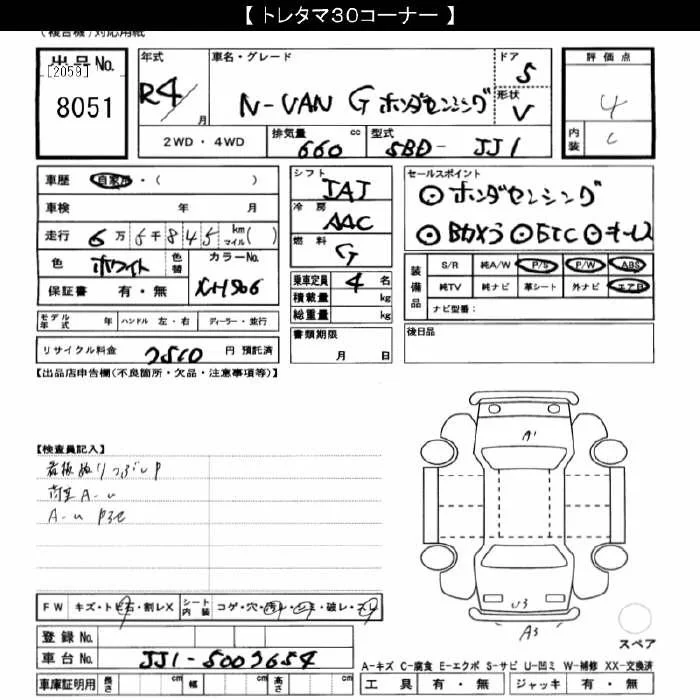 【 トレタマ30コーナー 】
(複合機)対応用紙
出品No. [2059] 8051
年式 R4 年 月
車名・グレード N-VAN G ホンダセンシング
ドア 5
形状 V
評価点 4
内装 C
2WD・4WD
排気量 660 cc
型式 5BD- JJ1
車歴 自家用・( )
車検 年 月
走行 6万5千845 km マイル( )
色 ホワイト 色替 カラーNo. NH906
保証書 有・無
モデル年式 年 ハンドル 左・右 ディーラー・並行
リサイクル料金 円 預託済
シフト
冷房 AAC
燃料 G
乗車定員 4 名
積載量 kg
総重量 kg
書類期限 月 日
セールスポイント
⊙ホンダセンシング
⊙Bカメラ ⊙ETC ⊙キーレス
装備品
S/R 純A/W P/S P/W ABS
純TV 純ナビ 革シート 外ナビ エアB
ナビ型番:
後日品
【出品店申告欄(不良箇所・欠品・注意事項等)】
【検査員記入】
看板ぬりつぶしP
荷室 A-U
A-U
A1
U3
A3
スペア
FW キズ・トビ石・割レX シート内装 コゲ・穴・汚レ・シミ・破レ・スレ
登録No.
車台No. JJ1-5003654
車庫証明用 長さ cm 幅 cm 高さ cm
A-キズ C-腐食 E-エクボ S-サビ U-凹ミ W-補修 XX-交換済
工具 有・無 ジャッキ 有・無